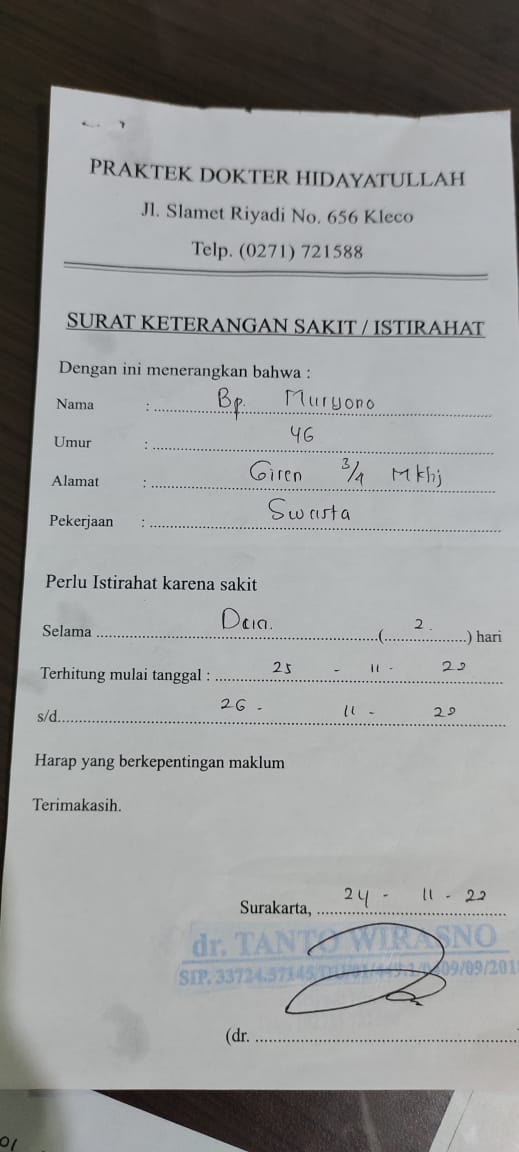 PRAKTEK DOKTER HIDAYATULLAH
Jl. Slamet Riyadi No. 656 Kleco
Telp. (0271) 721588
SURAT KETERANGAN SAKIT / ISTIRAHAT
Dengan ini menerangkan bahwa :
Nama : Bp. Muryono
Umur : 46
Alamat : Giren 3/4 Mkhj
Pekerjaan : Swasta
Perlu Istirahat karena sakit
Selama Dua. (2.) hari
Terhitung mulai tanggal : 25 - 11 -
s/d 26 - 11 -
Harap yang berkepentingan maklum
Terimakasih.
Surakarta, 24 - 11 -
dr. TANTO WIRASNO
SIP.
(dr.